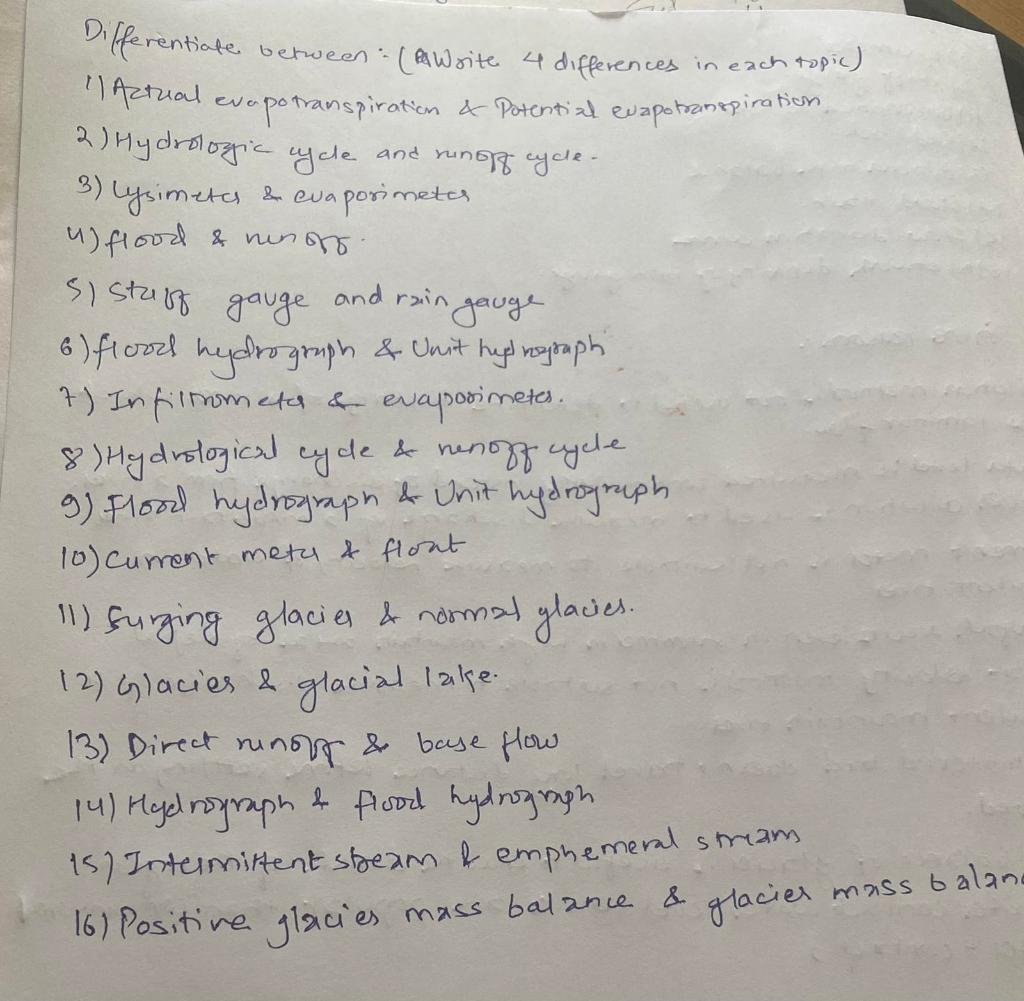 Differentiate between :- (Write 4 differences in each topic)
1) Actual evapotranspiration & Potential evapotranspiration.
2) Hydrologic cycle and runoff cycle.
3) Lysimeter & evaporimeter
4) flood & runoff.
5) Staff gauge and rain gauge
6) flood hydrograph & Unit hydrograph
7) Infiltrometer & evaporimeter.
8) Hydrological cycle & runoff cycle
9) Flood hydrograph & Unit hydrograph
10) Current meter & float
11) Surging glacier & normal glacier.
12) Glacier & glacial lake.
13) Direct runoff & base flow
14) Hydrograph & flood hydrograph
15) Intermittent stream & emphemeral stream
16) Positive glacier mass balance & glacier mass balanc